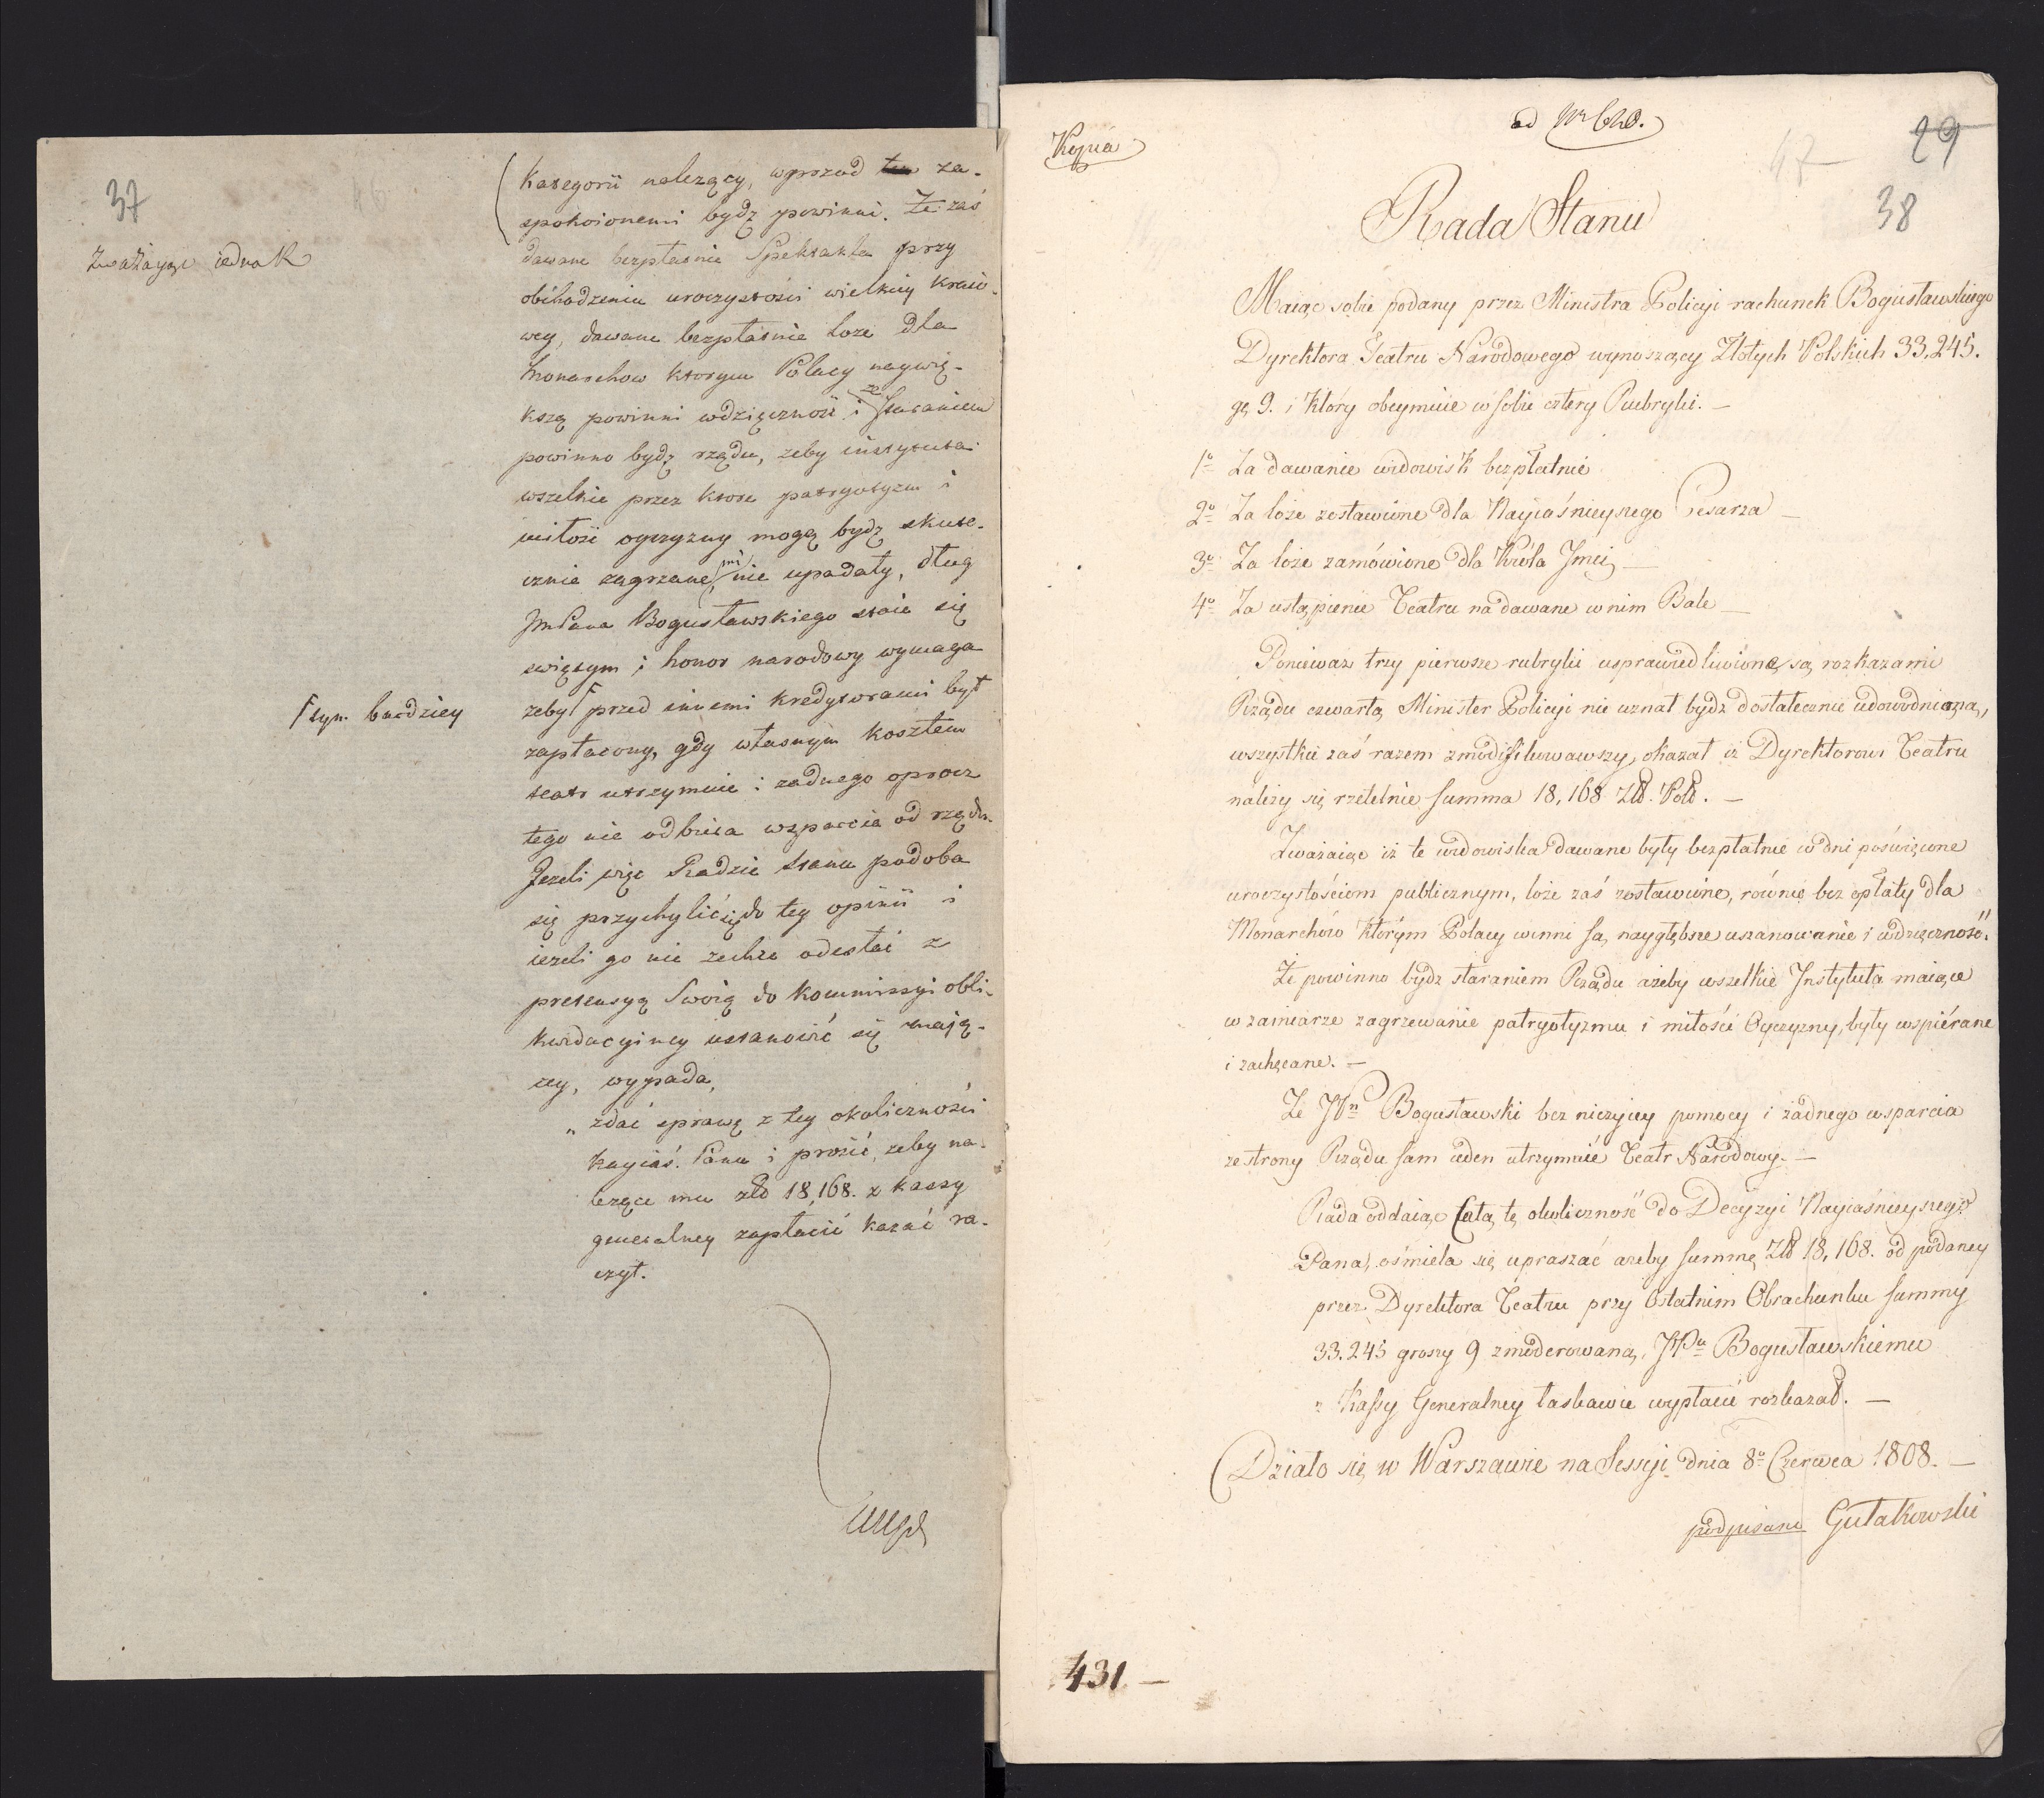 37
46
Zważaiąc iednak
kategorii należący, wprzod za-
spokoionemi bydź powinni. Że zaś
dawane bezpłatnie Spektakla przy
obchodzeniu uroczystości wielkiey kraio-
wey, dawane bezpłatnie loże dla
Monarchow ktorym Polacy naywię-
kszą powinni wdzięczność i że staraniem
powinno bydź rządu, żeby instytuta
wszelkie przez ktore patryotyzm i
miłość oyczyzny mogą bydź skute-
cznie zagrzanemi nie upadały, dług
JmPana Bogusławskiego staie się
świętym i honor narodowy wymaga
żeby przed innemi kredytorami był
tym bardziey
zapłacony, gdy własnym kosztem
teatr utrzymuie i żadnego oprocz
tego nie odbiera wsparcia od rządu.
Jeżeli więc Radzie Stanu podoba
się przychylić się do tey opinii i
ieżeli go nie zechce odesłać z
pretensyą Swoią do kommissyi obli-
kwidacyiney ustanowić się maią-
cey, wypada,
„ zdać sprawę z tey okoliczności
Nayiaś. Panu i prosić, żeby na-
leżące mu złł 18,168. z kassy
generalney zapłacić kazać ra-
czył.
Kopia
ad Nr 620.
47
29
38
Rada Stanu
Maiąc sobie podany przez Ministra Policyi rachunek Bogusławskiego
Dyrektora Teatru Narodowego wynoszący Złotych Polskich 33,245.
gr 9. i który obeymuie w sobie cztery Rubryki. —
1o Za dawanie widowisk bezpłatnie
2o Za loże zostawione dla Nayiaśnieyszego Cesarza —
3o Za loże zamówione dla Króla Jmci —
4o Za ustąpienie Teatru na dawane w nim Bale —
Ponieważ trzy pierwsze rubryki usprawiedliwione są rozkazami
Rządu czwartą Minister Policyi nie uznał bydź dostatecznie udowodnioną,
wszystkie zaś razem zmodifikowawszy, okazał iż Dyrektorowi Teatru
należy się rzetelnie summa 18,168 Złł. Poll. —
Zważaiąc iż te widowiska dawane były bezpłatnie w dni poświęcone
uroczystościom publicznym, loże zaś zostawione, równie bez opłaty dla
Monarchów którym Polacy winni są naygłębsze uszanowanie i wdzięczność.
Że powinno bydź staraniem Rządu ażeby wszelkie Instytuta maiące
w zamiarze zagrzewanie patryotyzmu i miłości Oyczyzny, były wspiérane
i zachęcane. —
Że JPn Bogusławski bez niczyiey pomocy i żadnego wsparcia
ze strony Rządu sam ieden utrzymuie Teatr Narodowy. —
Rada oddaiąc całą tę okoliczność do Decyzyi Nayiaśnieyszego
Pana, ośmiela się upraszać ażeby summę Złł 18,168. od podaney
przez Dyrektora Teatru przy Ostatnim Obrachunku summy
33.245 groszy 9 zmoderowaną, JPu Bogusławskiemu
z Kassy Generalney łaskawie wypłacić rozkazał. —
Działo się w Warszawie na Sessyi dnia 8o Czerwca 1808. —
podpisano Gutakowski
431 —